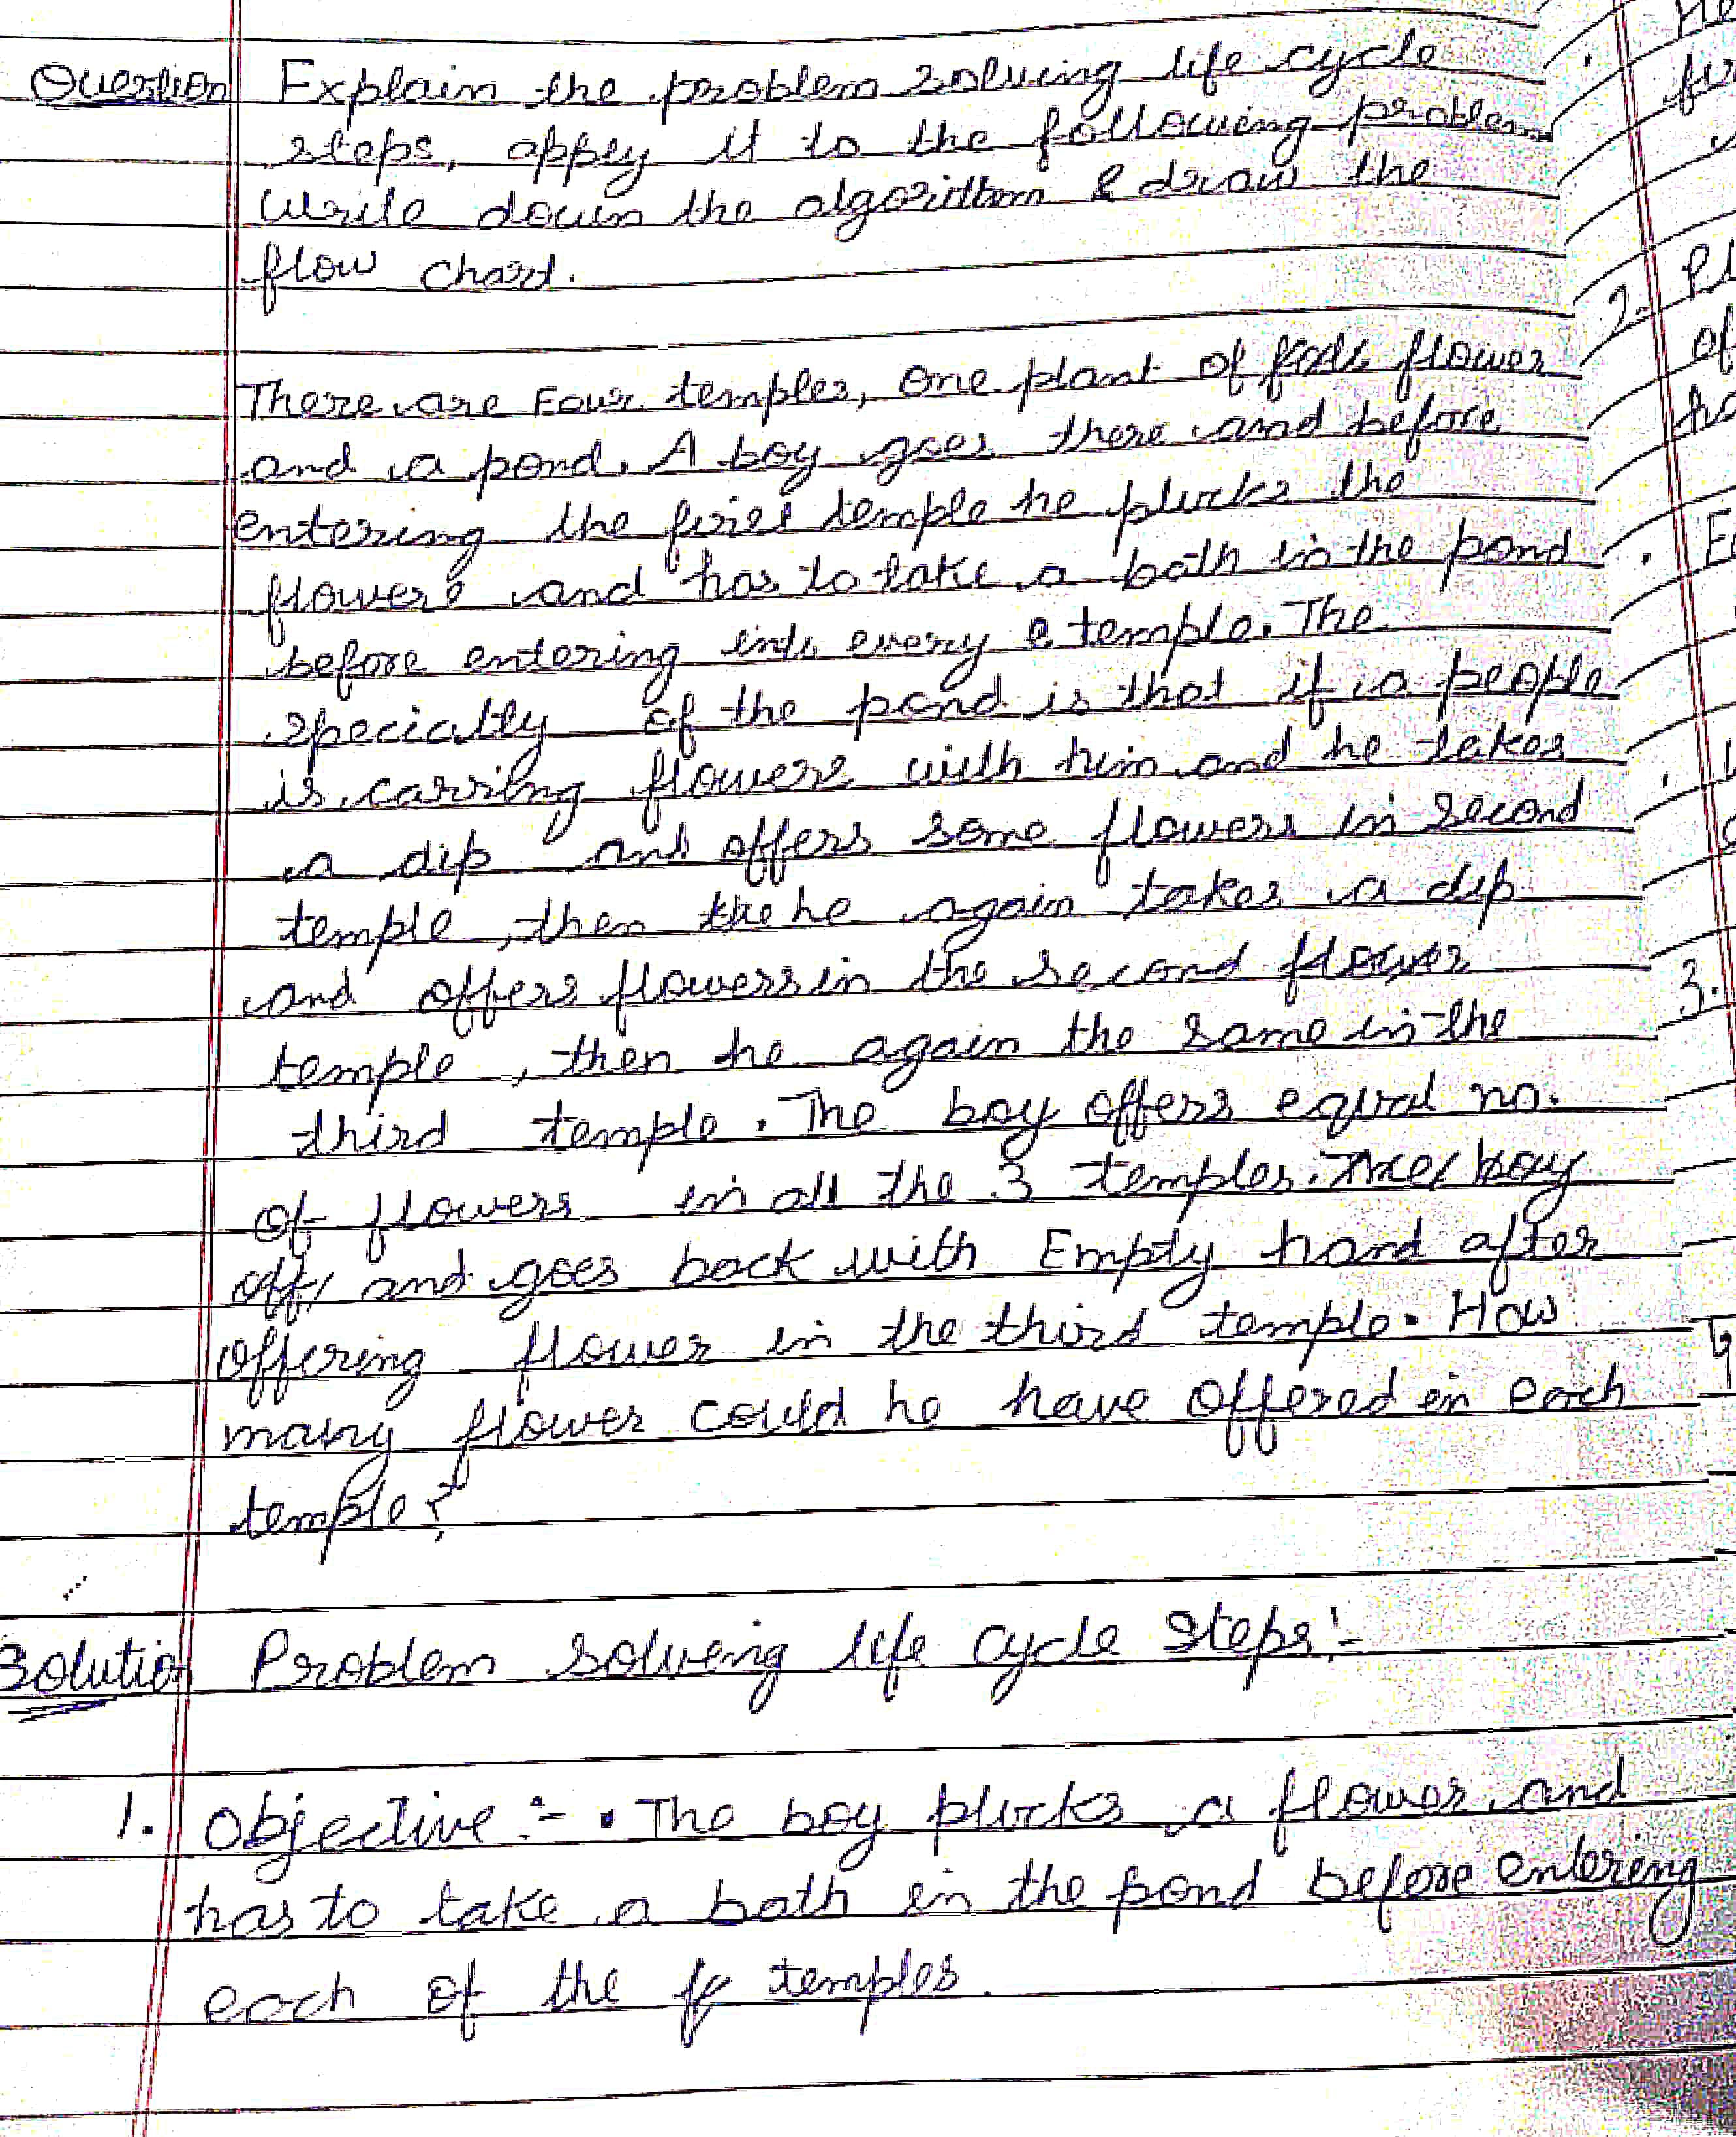 Question Explain the problem solving life cycle
steps, apply it to the following problem
Write down the algorithm & draw the
flow chart.
There are Four temples, one plant of flower
and a pond. A boy goes there and before
entering the first temple he plucks the
flowers and has to take a bath in the pond
before entering into every temple. The
specialty of the pond is that if a people
is carring flowers with him and he takes
a dip and offers some flowers in second
temple, then he again takes a dip
and offers flowers in the second flower
temple, then he again the same in the
third temple. The boy offers equal no.
of flowers in all the 3 temples. The boy
and goes back with Empty hand after
offering flower in the third temple. How
many flower could he have offered in each
temple?
Solution Problem solving life cycle steps:-
1. Objective :- • The boy plucks a flower and
has to take a bath in the pond before entering
each of the temples.
2.
3.